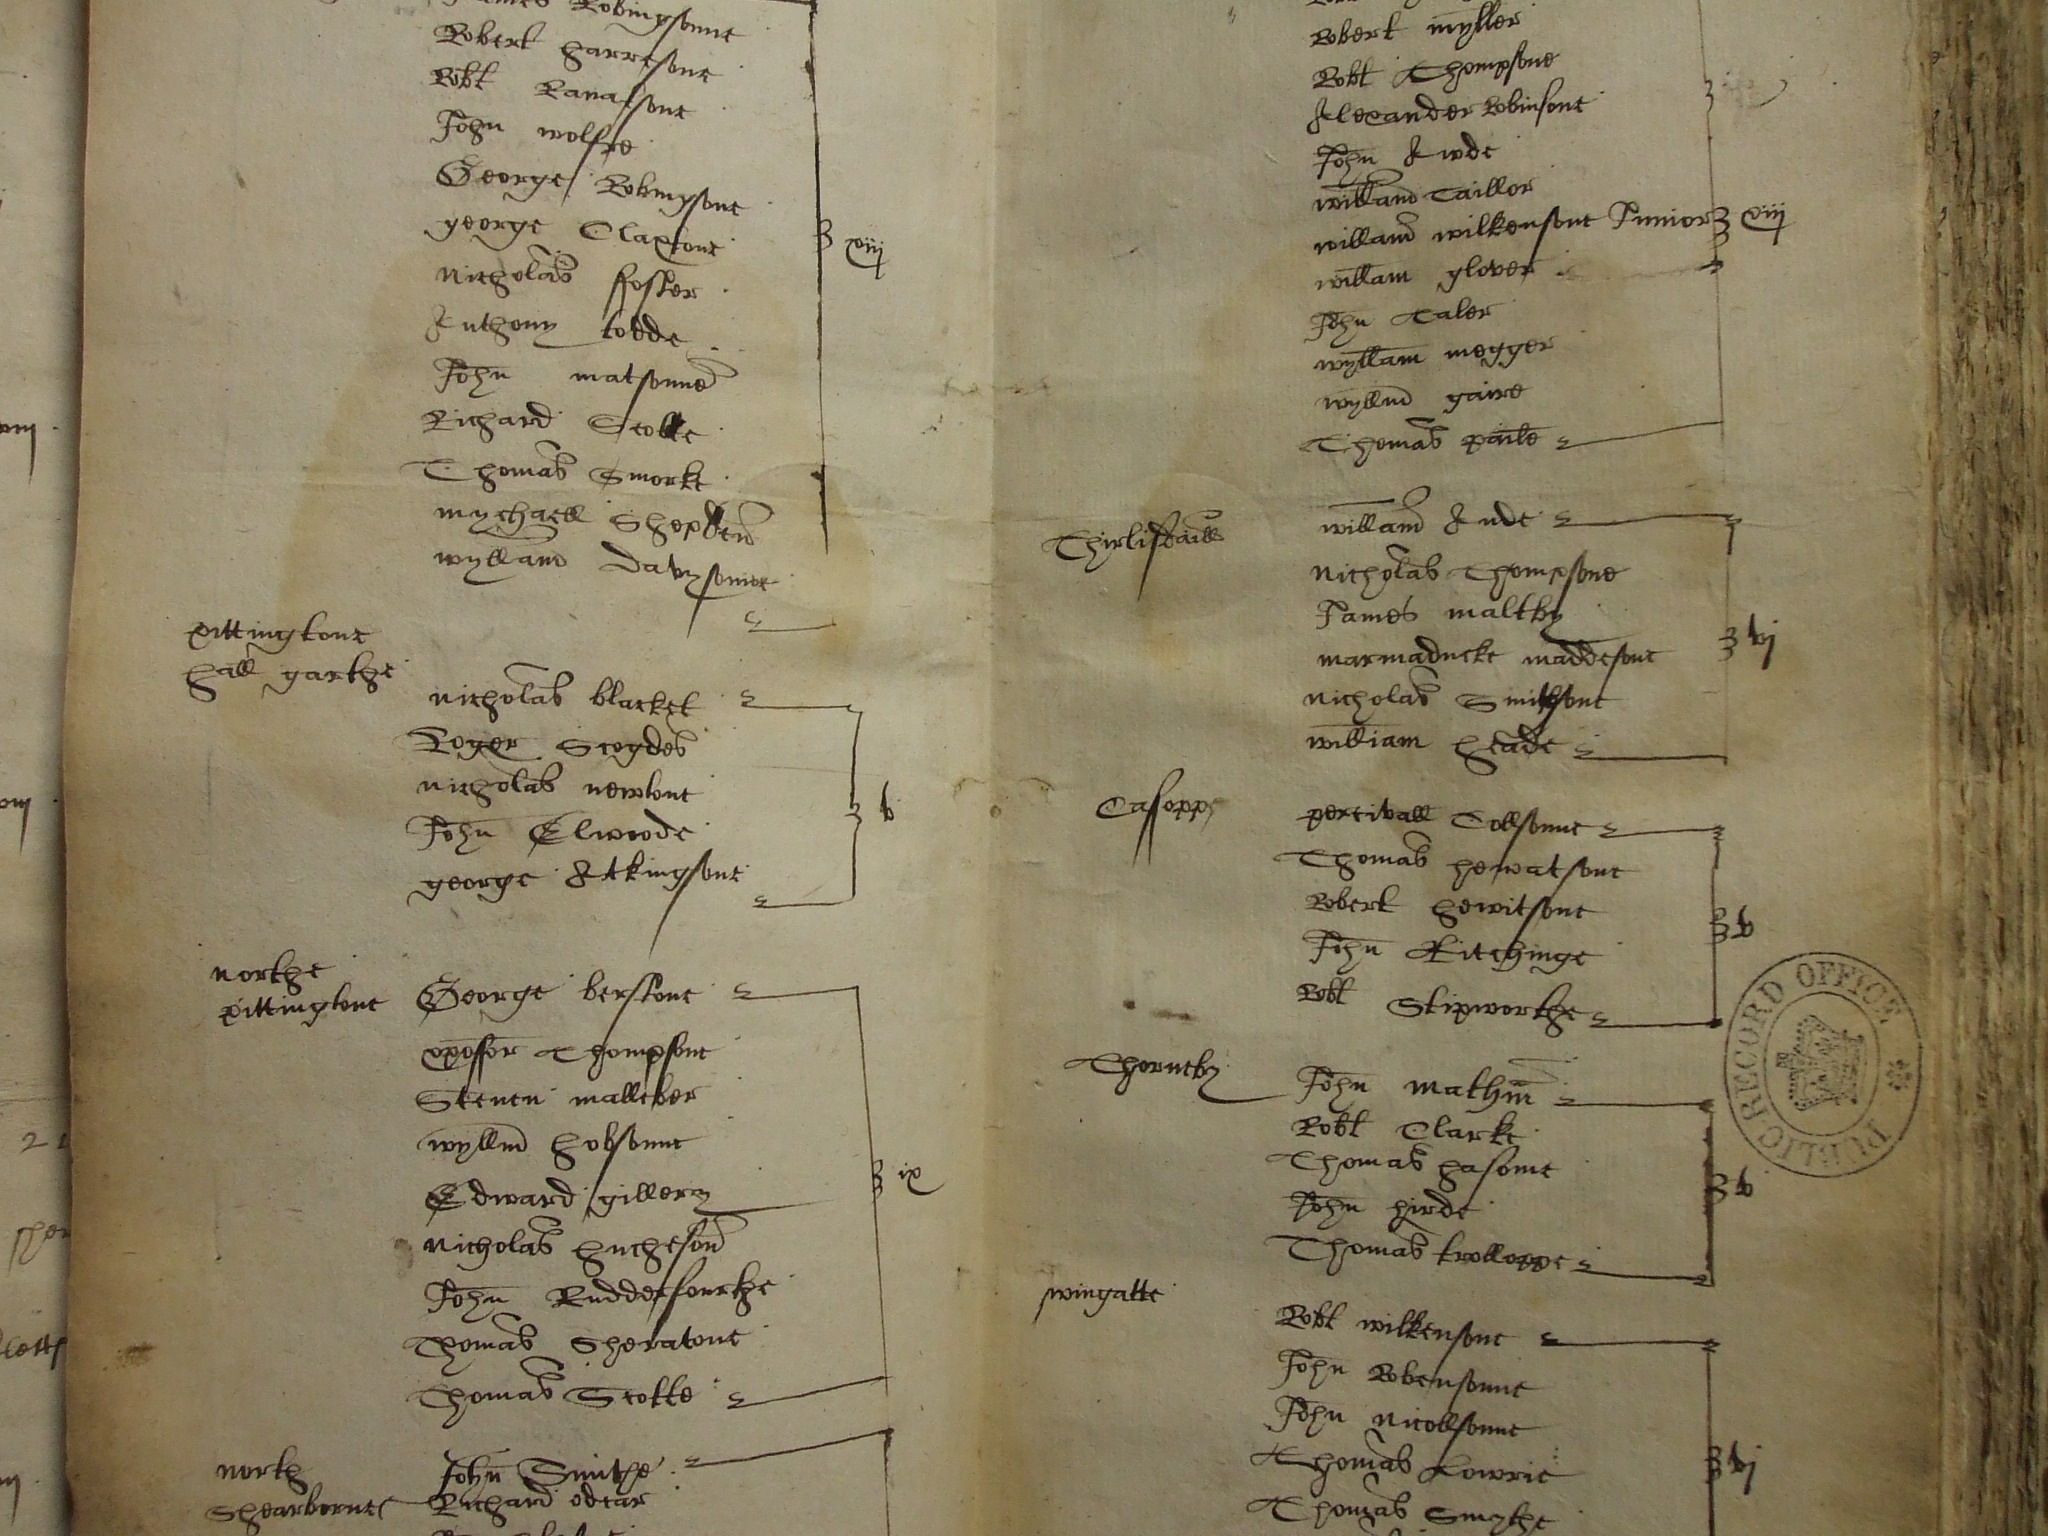 Robingsonne
Robert harresone
Robt
John wolfre
George Robingsone
george Claxtone
Nicholas ffoster
Anthony todde
John matsonne
Richard Stobbe
Thomas Smorke
mychaell
wyllam davysonne
xiij
pittingtone
hall garthe
Nicholas blacket
Roger Scogdes
Nicholas newtone
John Elwode
george Atkingsone
v
northe
pittingtone
George berstone
xpofer Thompsone
Steven malleber
wyllm hobsonne
Edward gillery
Nicholas hucheson
John Ruddersfourthe
Thomas Sheratone
Thomas Scotte
ix
north
Shearborne
John Smithe
Richard odcar
Robert myller
Robt Thompsone
Alexander Robinsone
John Awde
willam Taillor
willam wilkensone Junior
xiij
willam glover
John Taler
wyllam megger
wyllm gaire
Thomas
Thirlis
willam Aude
Nicholas Thompsone
James maltby
marmaducke maddesone
Nicholas Smithsone
william heade
vj
Casopp
percivall Collsonne
Thomas hewatsone
Robert hewitsone
John Kitchinge
Robt Skipworthe
v
Thorneby
John mathm
Robt Clarke
Thomas hasonne
John hirde
Thomas trolloppe
v
wingatte
Robt wilkensone
John Robensonne
John Nicollsonne
Thomas Lowrie
Thomas Smythe
vj
PUBLIC RECORD OFFICE